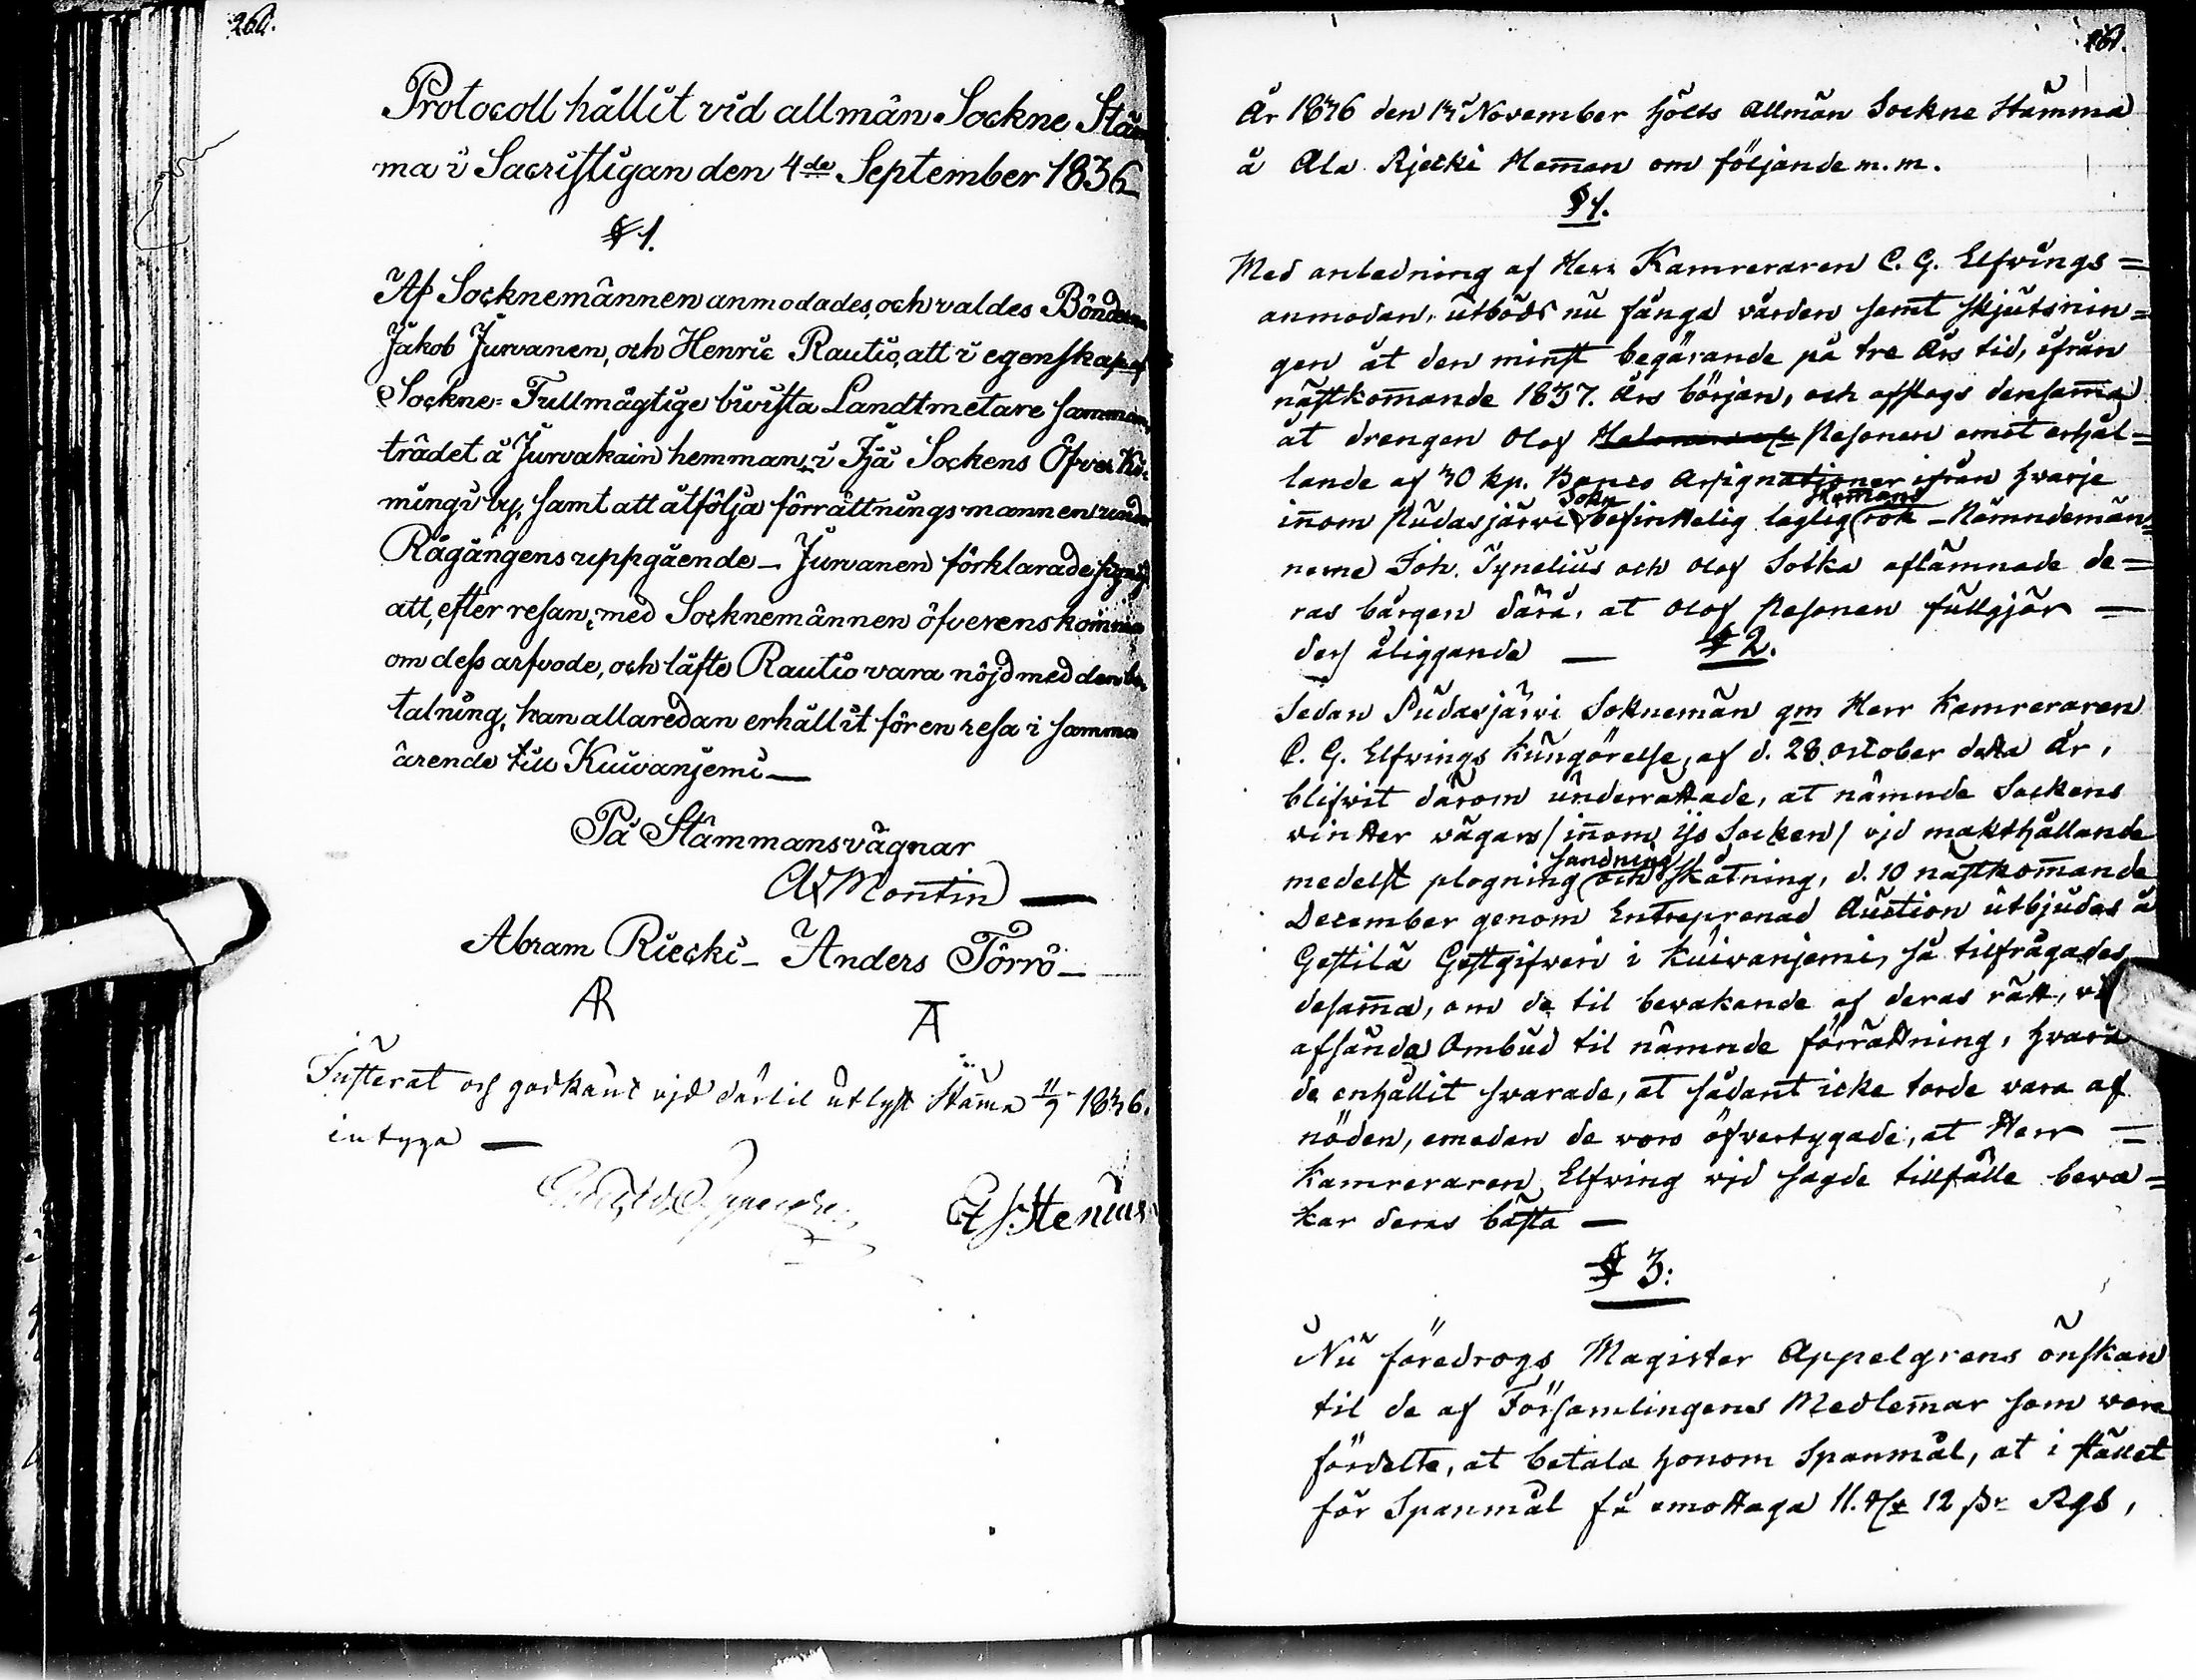 260.
Protocoll hållit vid allmän Sockne Stäm
ma i Sacristigan den 4de September 1836
§ 1.
Af Socknemännen anmodades, och valdes Bönderne
Jakob Jurvanen, och Henric Rautio, att i egenskap af
Sockne-Fullmägtige bivista Landtmetare samman,
trädet å Jurvakain hemman, i Ijå Sockens Öfver Ki-
mingi by, samt att åtfölja förrättningsmannen under
Rågångens uppgående — Jurvanen förklarade sig
att, efter resan, med Socknemännen öfverenskomma
om dess arfvode, och läfte Rautio vara nöjd med den be-
talning, han allaredan erhållit för en resa i samma
ärende till Kuivanjemi —
På Stämmans vägnar
Montin —
Abram Riecki — Anders Törrö —
AR
AT
Justerat och godkänt vid därtil utlyst Stäma 11/9 1836.
intyga —
Stenius
261.
År 1836 den 13 November hölts Allmän Sockne Stämma
å Ala Rjecki Heman om följande m.m.
§ 1.
Med anledning af Herr Kamreraren C. G. Elfvings =
anmodan, utböds nu fånga vården samt skjutsnin =
gen åt den minst begärande på tre Års tid, ifrån
nästkomande 1837. Års början, och afslogs densama
åt drengen Olof Pesonen emot erhål =
lande af 30 kp. Banco Assignationer ifrån hvarje
inom Pudasjärvi Sokn befintelig laglig Hemans rök — Nämndemän =
nerne Joh. Tynelius och Olof Solka aflämnade de =
ras bårgen därå, at Olof Pesonen fullgjör —
dess åliggande — § 2.
Sedan Pudasjärvi Soknemän gm Herr Kamreraren
C. G. Elfvings Kungörelse, af d. 28 October detta År,
blifvit därom underrättade, at nämnde Sockens
vinter vägars / inom Ijo Socken / vid makthållande
medelst plogning sandning och skåtning, d. 10 nästkomande
December genom Entreprenad Auction utbjudes å
Gestilä Gestgifveri i Kuivanjemi, så tilfrågades
desama, om de til bevakande af deras rätt, vi
afsända Ombud til nämnde förrättning, hvarå
de enhällit svarade, at sådant icke torde vara af
nöden, emedan de voro öfvertygade, at Herr =
Kamreraren Elfving vid sagde tillfälle beva =
kar deras bästa —
§ 3:
Nu föredrogs Magister Appelgrens önskan
til de af Församlingens Medlemar som vore
fördelte, at betala honom Spanmål, at i stället
för Spanmål få emottaga 11. 12 Rgs,